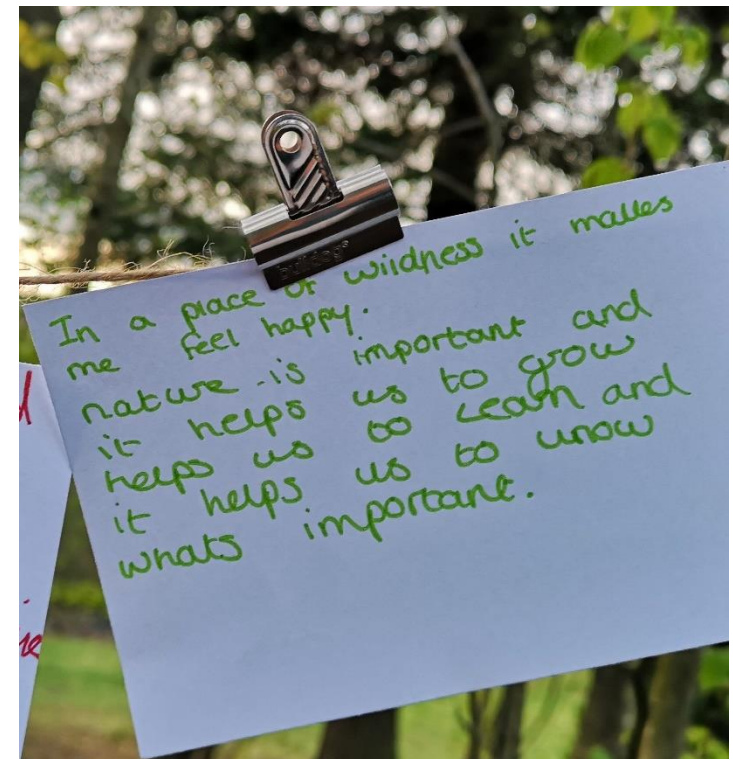 bulldog®
In a place of wildness it makes
me feel happy.
nature is important and
it helps us to grow
helps us to learn and
it helps us to know
whats important.